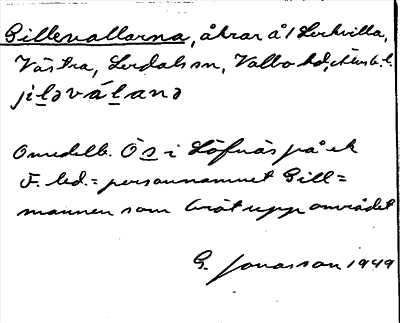 Gillevallarna, åkrar å 1 Lockvilla,
Västra, Lerdalssn, Valbo hd, Älvsb. l.
jiləválanə
Omedelb. Ös i Löfnäs på ek
F. led. = personnamnet Gill=
mannen som bröt upp området
G. Jonasson 1949